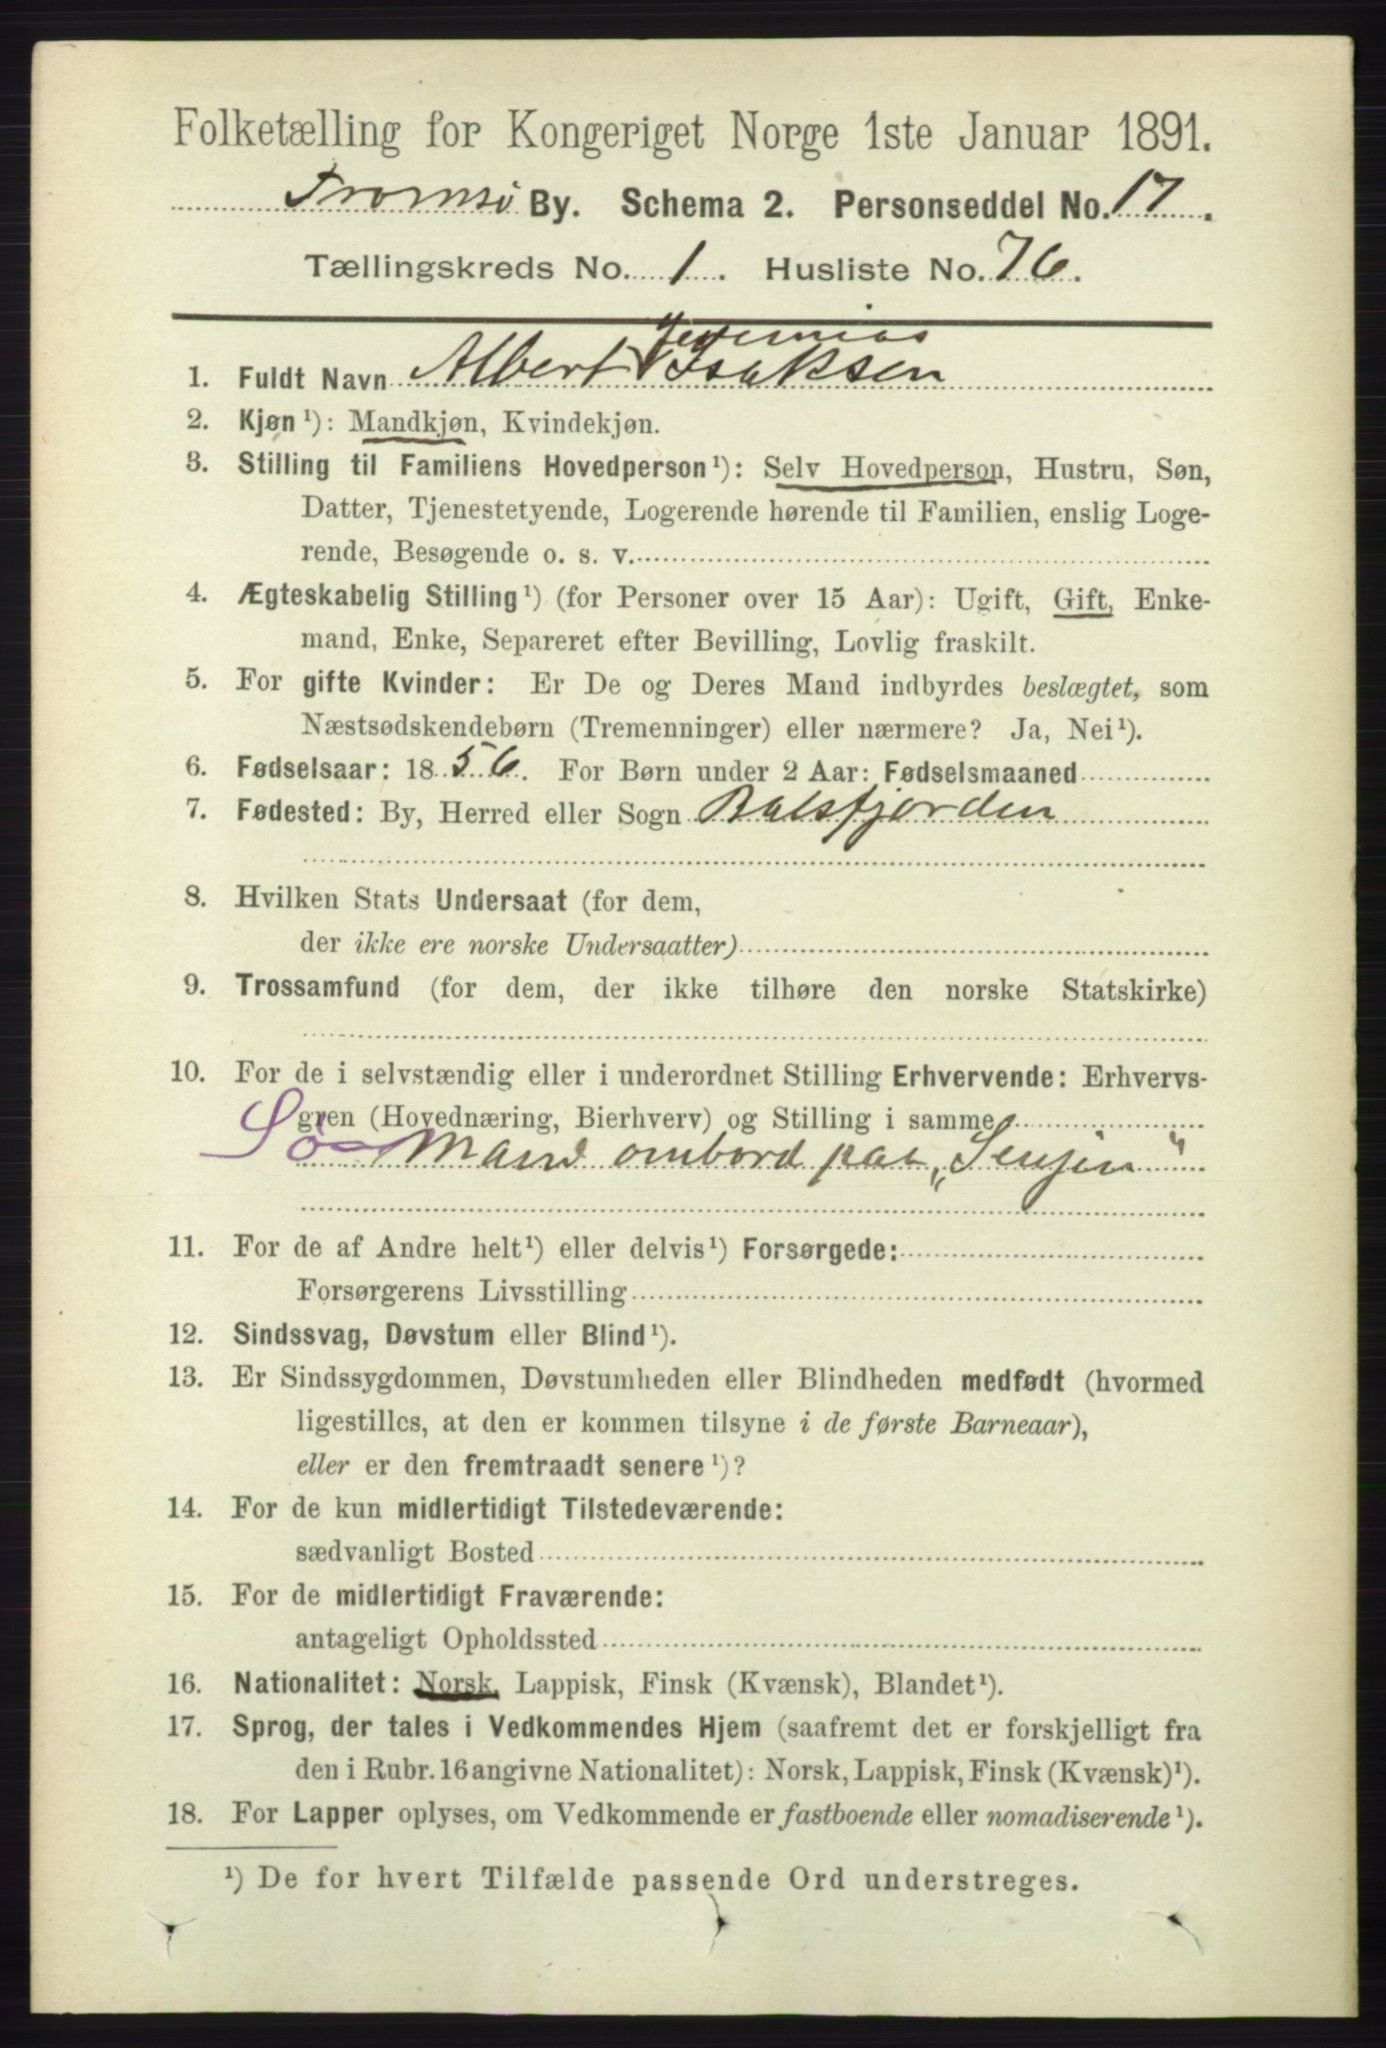 Folketælling for Kongeriget Norge 1ste Januar 1891.
Tromsø By. Schema 2. Personseddel No. 17.
Tællingskreds No. 1. Husliste No. 76.
Jeremias
1. Fuldt Navn Albert Isaksen
2. Kjøn¹): Mandkjøn, Kvindekjøn.
3. Stilling til Familiens Hovedperson¹): Selv Hovedperson, Hustru, Søn,
Datter, Tjenestetyende, Logerende hørende til Familien, enslig Loge-
rende, Besøgende o. s. v.
4. Ægteskabelig Stilling¹) (for Personer over 15 Aar): Ugift, Gift, Enke-
mand, Enke, Separeret efter Bevilling, Lovlig fraskilt.
5. For gifte Kvinder: Er De og Deres Mand indbyrdes beslægtet, som
Næstsødskendebørn (Tremenninger) eller nærmere? Ja, Nei¹).
6. Fødselsaar: 1856. For Børn under 2 Aar: Fødselsmaaned
7. Fødested: By, Herred eller Sogn Balsfjorden
8. Hvilken Stats Undersaat (for dem,
der ikke ere norske Undersaatter)
9. Trossamfund (for dem, der ikke tilhøre den norske Statskirke)
10. For de i selvstændig eller i underordnet Stilling Erhvervende: Erhvervs-
gren (Hovednæring, Bierhverv) og Stilling i samme
Sø-Mand ombord paa „Senjen"
11. For de af Andre helt¹) eller delvis¹) Forsørgede:
Forsørgerens Livsstilling
12. Sindssvag, Døvstum eller Blind¹).
13. Er Sindssygdommen, Døvstumheden eller Blindheden medfødt (hvormed
ligestilles, at den er kommen tilsyne i de første Barneaar),
eller er den fremtraadt senere¹)?
14. For de kun midlertidigt Tilstedeværende:
sædvanligt Bosted
15. For de midlertidigt Fraværende:
antageligt Opholdssted
16. Nationalitet: Norsk, Lappisk, Finsk (Kvænsk), Blandet¹).
17. Sprog, der tales i Vedkommendes Hjem (saafremt det er forskjelligt fra
den i Rubr. 16 angivne Nationalitet): Norsk, Lappisk, Finsk (Kvænsk)¹).
18. For Lapper oplyses, om Vedkommende er fastboende eller nomadiserende¹).
¹) De for hvert Tilfælde passende Ord understreges.